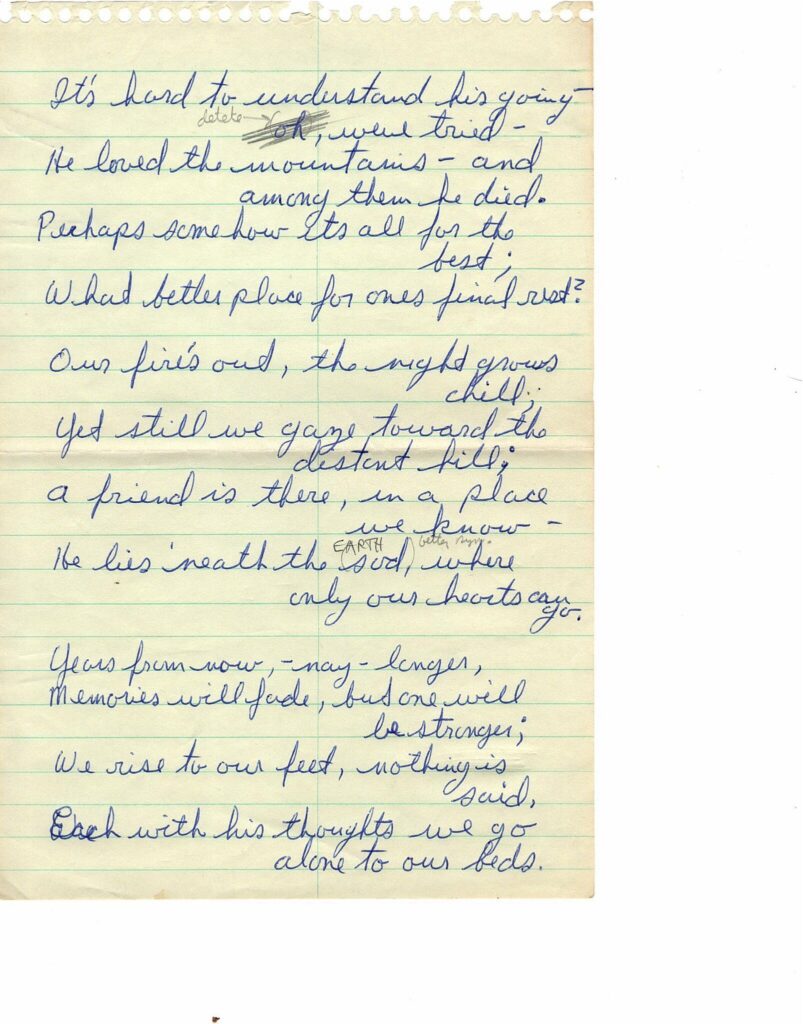 It's hard to understand his going
delete oh, weve tried -
He loved the mountains - and
among them he died.
Perhaps somehow its all for the
best;
What better place for ones final rest?
Our fire's out, the night grows
chill;
Yet still we gaze toward the
distant hill;
A friend is there, in a place
we know -
EARTH better sym.
He lies 'neath the (sod,) where
only our hearts can
go.
Years from now, - nay - longer,
Memories will fade, but one will
be stronger;
We rise to our feet, nothing is
said,
Each with his thoughts we go
alone to our beds.